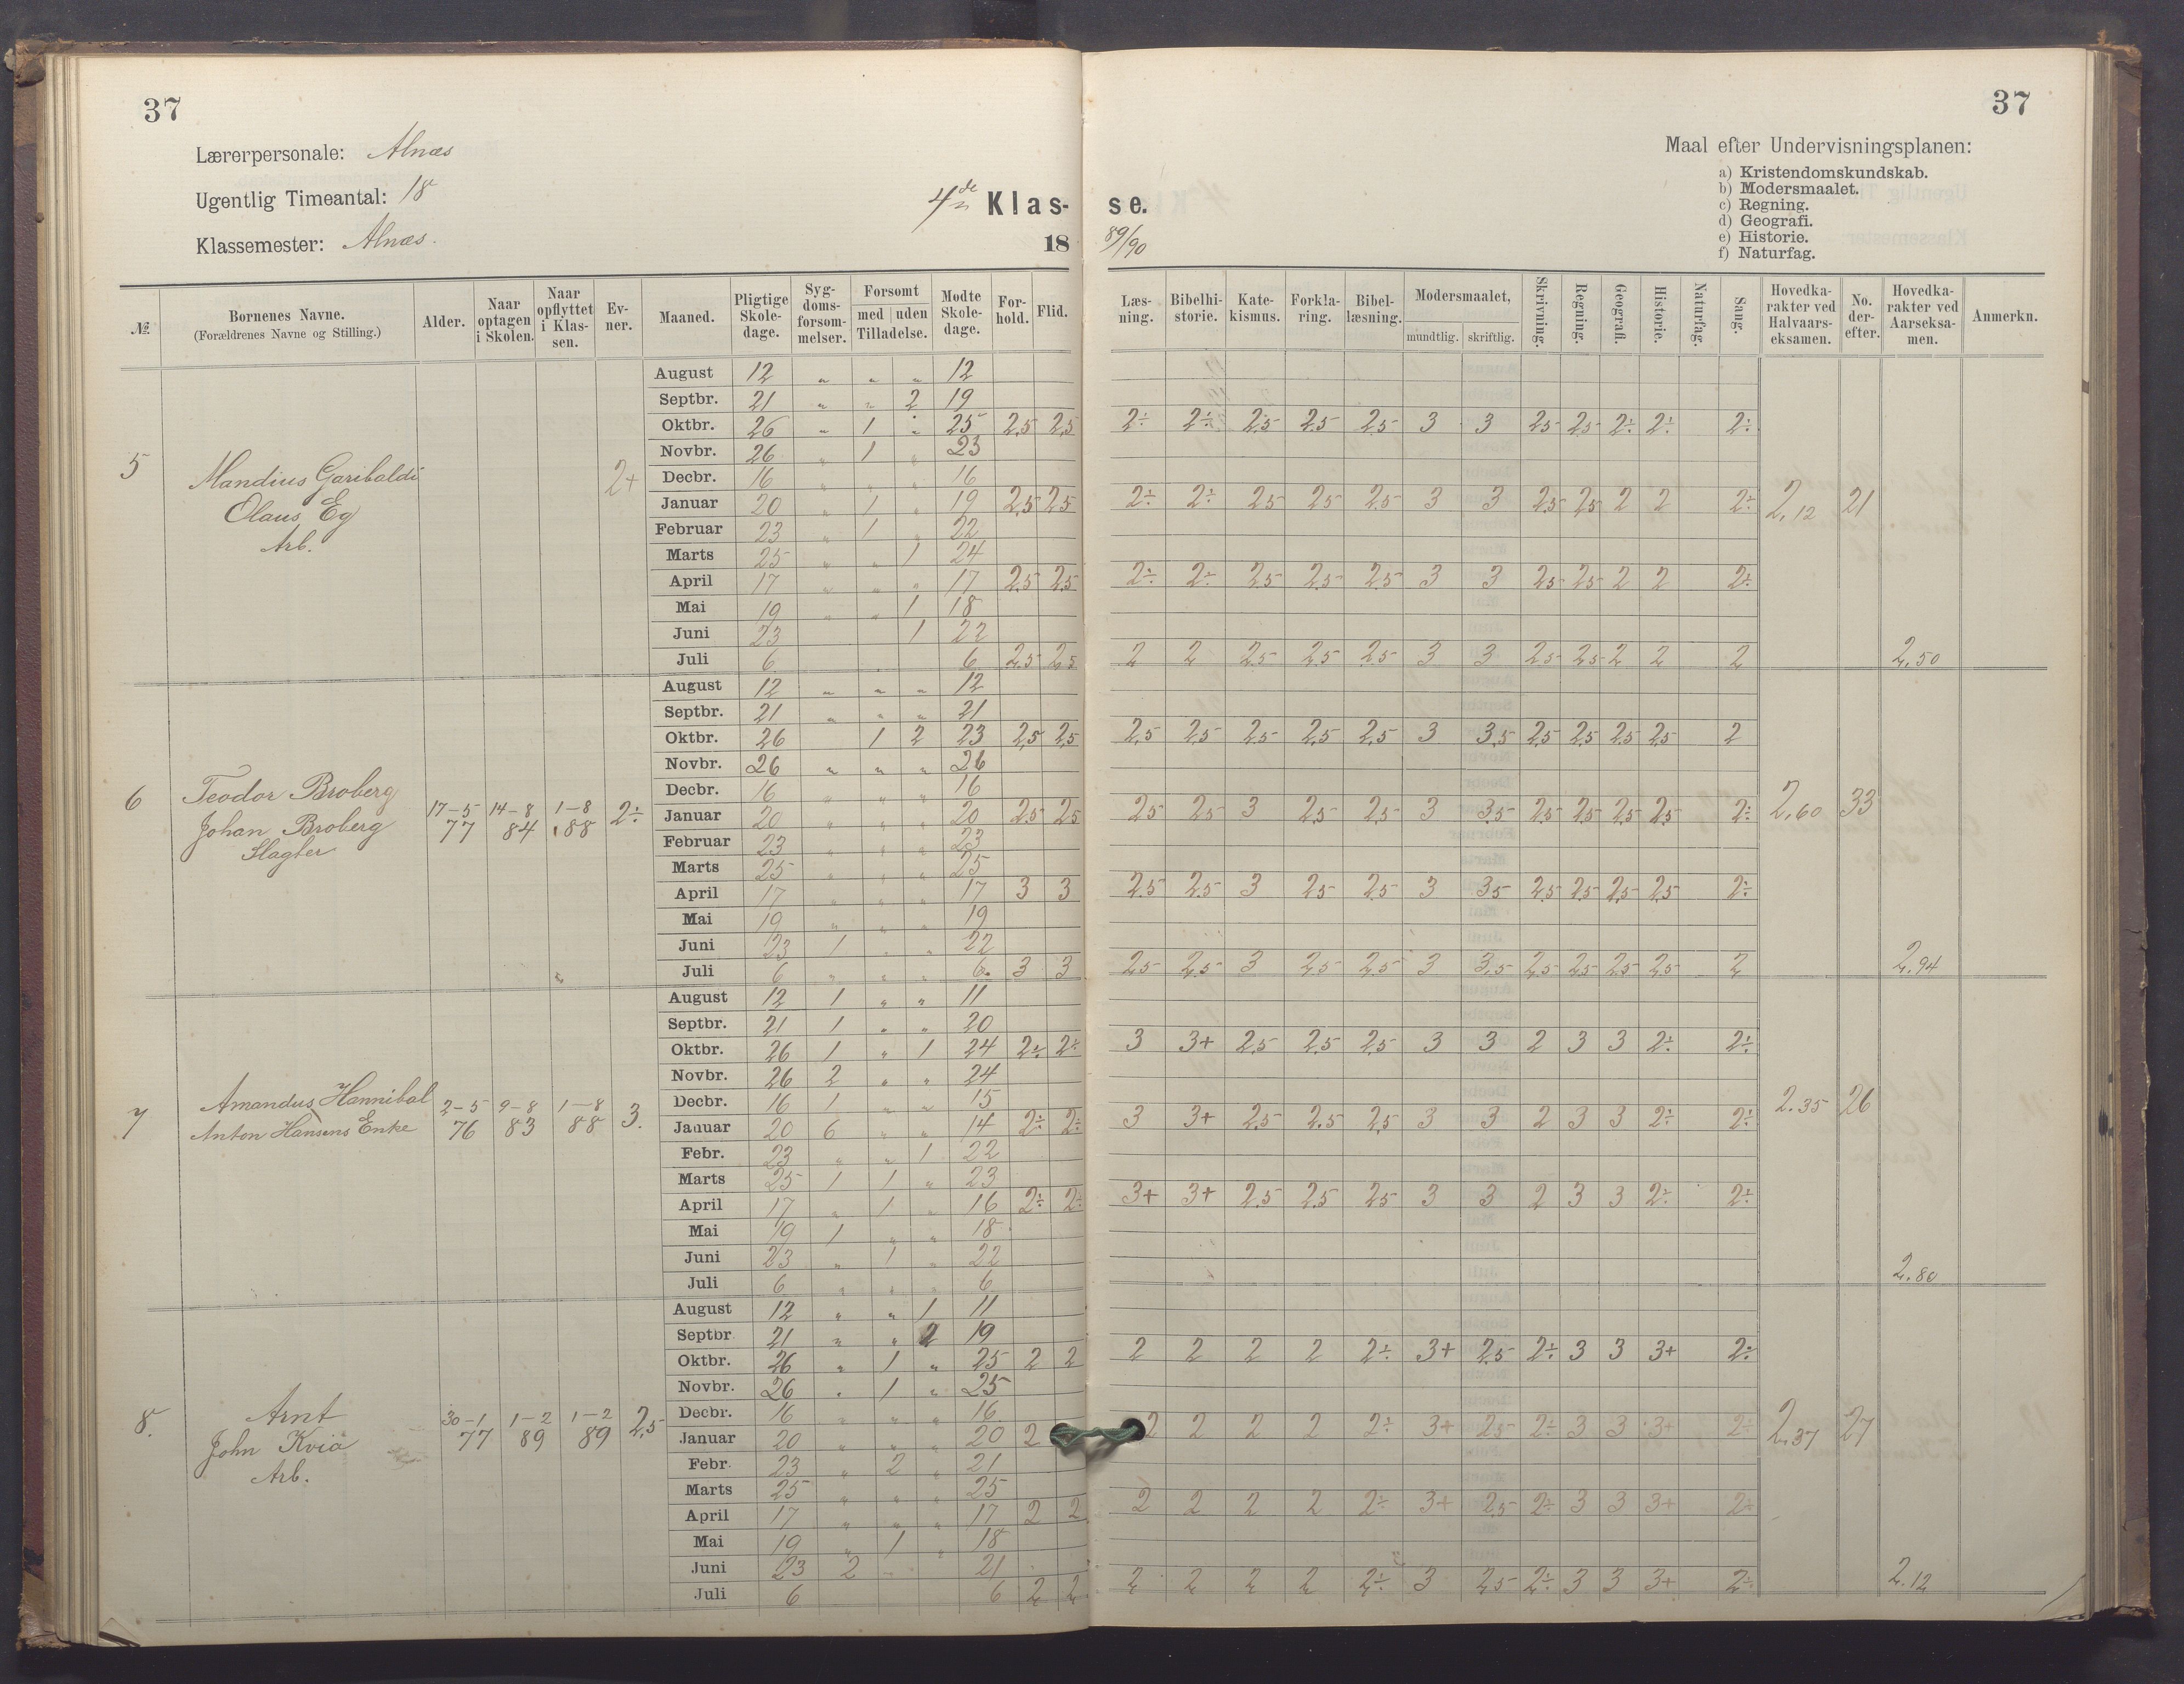 37
37
Lærerpersonale: Alnæs
Ugentlig Timeantal: 18
Klassemester: Alnæs.
4de Klas- se.
18 89/90
Maal efter Undervisningsplanen:
a) Kristendomskundskab.
b) Modersmaalet.
c) Regning.
d) Geografi.
e) Historie.
f) Naturfag.
№ Børnenes Navne. (Forældrenes Navne og Stilling.) Alder. Naar optagen i Skolen. Naar opflyttet i Klassen. Evner. Maaned. Pligtige Skoledage. Sygdomsforsømmelser. Forsømt med | uden Tilladelse. Mødte Skoledage. Forhold. Flid. Læsning. Bibelhistorie. Katekismus. Forklaring. Bibellæsning. Modersmaalet, mundtlig. skriftlig. Skrivning. Regning. Geografi. Historie. Naturfag. Sang. Hovedkarakter ved Halvaarseksamen. No. derefter. Hovedkarakter ved Aarseksamen. Anmerkn.
5 Mandius Garibaldi
Olaus Eg
Arb.
2+
August 12 " " " 12
Septbr. 21 " " 2 19
Oktbr. 26 " 1 " 25 2,5 2,5 2÷ 2÷ 2,5 2,5 2,5 3 3 2,5 2,5 2÷ 2÷ 2÷
Novbr. 26 " 1 " 23
Decbr. 16 " " " 16
Januar 20 " 1 " 19 2,5 2,5 2÷ 2÷ 2,5 2,5 2,5 3 3 2,5 2,5 2 2 2÷ 2,12 21
Februar 23 " 1 " 22
Marts 25 " " 1 24
April 17 " " " 17 2,5 2,5 2÷ 2÷ 2,5 2,5 2,5 3 3 2,5 2,5 2 2 2÷
Mai 19 " " 1 18
Juni 23 1 22
Juli 6 6 2,5 2,5 2 2 2,5 2,5 2,5 3 3 2,5 2,5 2 2 2 2,50
6 Teodor Broberg
Johan Broberg
Slagter
17-5 77 14-8 84 1-8 88 2÷
August 12 " " " 12
Septbr. 21 " " " 21
Oktbr. 26 1 2 23 2,5 2,5 2,5 2,5 2,5 2,5 2,5 3 3,5 2,5 2,5 2,5 2,5 2
Novbr. 26 " " " 26
Decbr. 16 " " " 16
Januar 20 " " " 20 2,5 2,5 2,5 2,5 3 2,5 2,5 3 3,5 2,5 2,5 2,5 2,5 2÷ 2,60 33
Februar 23 " " " 23
Marts 25 " " " 25
April 17 " " " 17 3 3 2,5 2,5 3 2,5 2,5 3 3,5 2,5 2,5 2,5 2,5 2÷
Mai 19 " " " 19
Juni 23 1 " " 22
Juli 6 " " " 6. 3 3 2,5 2,5 3 2,5 2,5 3 3,5 2,5 2,5 2,5 2,5 2 2,94
7 Amandus Hannibal
Anton Hansens Enke
2-5 76 9-8 83 1-8 88 3.
August 12 1 " " 11
Septbr. 21 1 " " 20
Oktbr. 26 1 " 1 24 2÷ 2÷ 3 3+ 2,5 2,5 2,5 3 3 2 3 3 2÷ 2÷
Novbr. 26 2 " " 24
Decbr. 16 1 " " 15
Januar 20 6 " " 14 2÷ 2÷ 3 3+ 2,5 2,5 2,5 3 3 2 3 3 2÷ 2÷ 2.35 26
Febr. 23 " " 1 22
Marts 25 1 1 " 23
April 17 " 1 " 16 2÷ 2÷ 3+ 3+ 2,5 2,5 2,5 3 3 2 3 3 2÷ 2÷
Mai 19 1 " " 18
Juni 23 " 1 " 22
Juli 6 " " " 6 2.80
8. Arnt
John Kvia
Arb.
30-1 77 1-2 89 1-2 89 2,5
August 12 " " 1 11
Septbr 21 " " 2 19
Oktbr. 26 " 1 " 25 2 2 2 2 2 2 2÷ 3+ 2,5 2÷ 3 3 3+ 2÷
Novbr. 26 " 1 " 25
Decbr. 16 " " " 16
Januar 20 " " " 20 2 2 2 2 2 2÷ 3+ 2,5 2÷ 3 3 3+ 2÷ 2,37 27
Febr. 23 " 2 " 21
Marts 25 " " " 25
April 17 " " " 17 2 2 2 2 2 2 2÷ 3+ 2,5 2÷ 3 3 3+ 2÷
Mai 19 " 1 " 18
Juni 23 2 " 21
Juli 6 6 2 2 2 2 2 2 2÷ 3 2,5 2÷ 3 3 3+ 2÷ 2.12